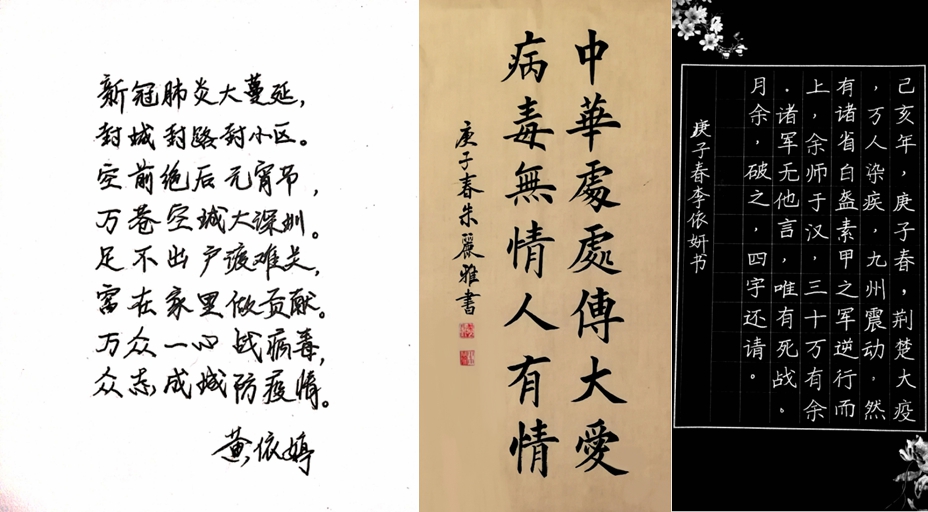 新冠肺炎大蔓延，
封城封路封小区。
空前绝后元宵节，
万巷空城大深圳。
足不出户渡难关，
窝在家里做贡献。
万众一心战病毒，
众志成城防疫情。
黄依婷
中華處處傳大愛
病毒無情人有情
庚子春朱麗雅書
己亥年，庚子春，荆楚大疫
，万人染疾，九州震动，然
有诸省白盔素甲之军逆行而
上，余师于汉，三十万有余
．诸军无他言，唯有死战。
月余，破之，四字还请。
庚子春李依妍书